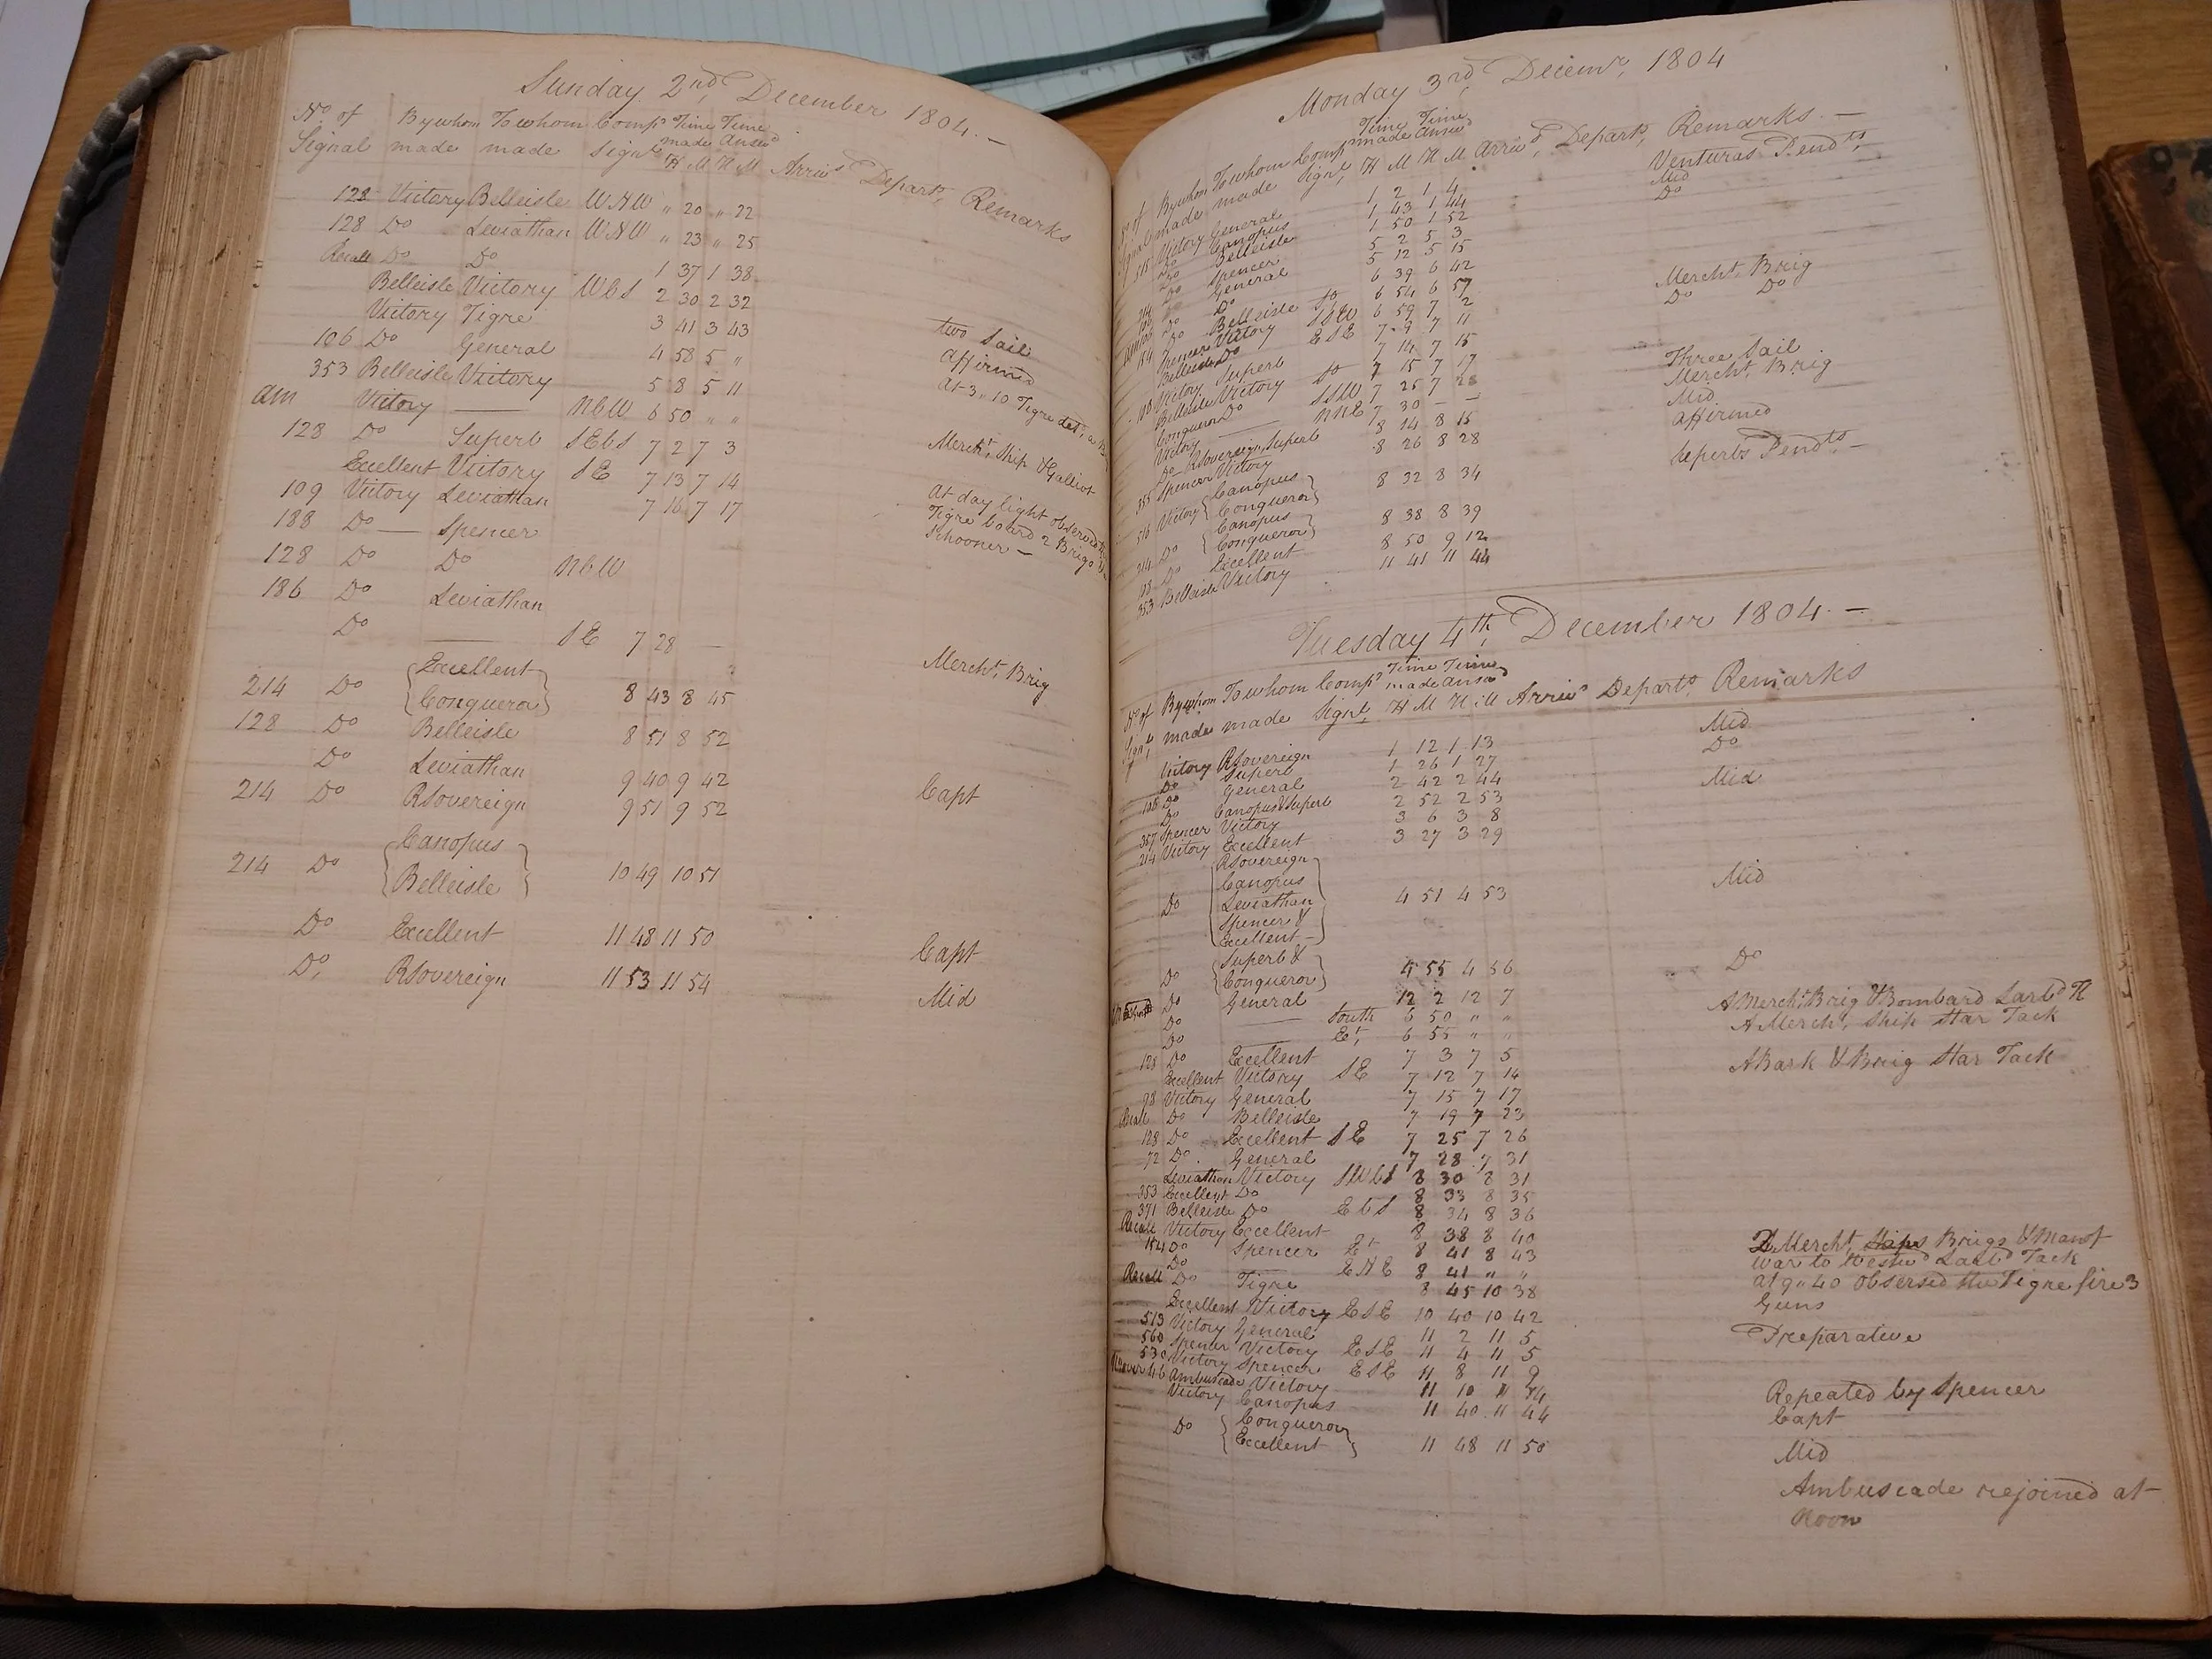 Sunday 2nd December 1804.—
No of By whom To whom Comps Time Time
Signal made made Signl made Answd
H M H M Arrivs Departs Remarks
128 Victory Belleisle WNW " 20 " 22
128 Do Leviathan WNW " 23 " 25
Recall Do Do 1 37 1 38
Belleisle Victory WbS 2 30 2 32
Victory Tigre 3 41 3 43 two Sail
106 Do General 4 58 5 " affirmed
353 Belleisle Victory 5 8 5 11 At 3,,10 Tigre
am Victory — NbW 6 50 " "
128 Do Superb SEbS 7 2 7 3 Mercht Ship & Galliot
Excellent Victory SE 7 13 7 14
109 Victory Leviathan 7 16 7 17 At day light observed
188 Do — Spencer Tigre board 2 Brigs
128 Do Do NbW Schooner —
186 Do Leviathan
Do — SE 7 28 — Mercht Brig
214 Do {Excellent
Conqueror} 8 43 8 45
128 Do Belleisle 8 51 8 52
Do Leviathan 9 40 9 42 Capt
214 Do RSovereign 9 51 9 52
214 Do {Canopus
Belleisle} 10 49 10 51
Do Excellent 11 48 11 50 Capt
Do RSovereign 11 53 11 54 Mid
Monday 3rd Decemr 1804
Time Time
By whom To whom Comps made Answd
made made Signl H M H M Arrivd Departs Remarks.—
Victory General 1 2 1 4 Venturas Pendts
Do Canopus 1 43 1 44 Mid
Do Belleisle 1 50 1 52 Do
Do Spencer 5 2 5 3
General 5 12 5 15
Do Do 6 39 6 42
Do Belleisle 6 54 6 57 Mercht Brig
Spencer Victory SSW 6 59 7 2 Do Do
Belleisle Do ESE 7 9 7 11
Victory Superb 7 14 7 15
Belleisle Victory 7 15 7 17 Three Sail
Conqueror Do SSW 7 25 7 Mercht Brig
Victory — NNE 7 30 — — Mid
Do RSovereign, Superb 8 14 8 15 affirmed
Spencer Victory 8 26 8 28
Victory {Canopus
Conqueror} 8 32 8 34 Superbs Pendts —
214 Do {Canopus
Conqueror} 8 38 8 39
Do Excellent 8 50 9 12
353 Belleisle Victory 11 41 11 44
Tuesday 4th December 1804.—
Time Time
No of By whom To whom Comps made Answd
Signl made made Signl H M H M Arrivs Departs Remarks
Victory RSovereign 1 12 1 13 Mid
Do Superb 1 26 1 27 Do
108 Do General 2 42 2 44
Do Canopus & Superb 2 52 2 53 Mid
Spencer Victory 3 6 3 8
214 Victory Excellent 3 27 3 29
Do {RSovereign
Canopus
Leviathan 4 51 4 53 Mid
Spencer &
Excellent—}
Do {Superb &
Conqueror} 4 55 4 56 Do
Do General 12 2 12 7
Do — South 6 50 " " A Mercht Brig & Bombard Larbd
Do — Et 6 55 " " A Mercht Ship Star Tack
128 Do Excellent 7 3 7 5
Excellent Victory SE 7 12 7 14 A Bark & Brig Star Tack
98 Victory General 7 15 7 17
Recall Do Belleisle 7 19 7 23
128 Do Excellent SE 7 25 7 26
72 Do General 7 28 7 31
Leviathan Victory SWbS 8 30 8 31
353 Excellent Do 8 33 8 35
371 Belleisle Do EbS 8 34 8 36
Recall Victory Excellent 8 38 8 40
154 Do Spencer Et 8 41 8 43 2 Mercht Ships Brigs & Man of
Do ENE 8 41 " " War to Westwd Larbd Tack
Recall Do Tigre 8 45 10 38 at 9,,40 observed the Tigre fire 3
Excellent Victory ESE 10 40 10 42 Guns
513 Victory General 11 2 11 5 Preparative
560 Spencer Victory ESE 11 4 11 5
530 Victory Spencer ESE 11 8 11 9
46 Ambuscade Victory 11 10 11 14 Repeated by Spencer
Victory Canopus 11 40 11 44 Capt
Do {Conqueror
Excellent} 11 48 11 50 Mid
Ambuscade rejoined at
Noon